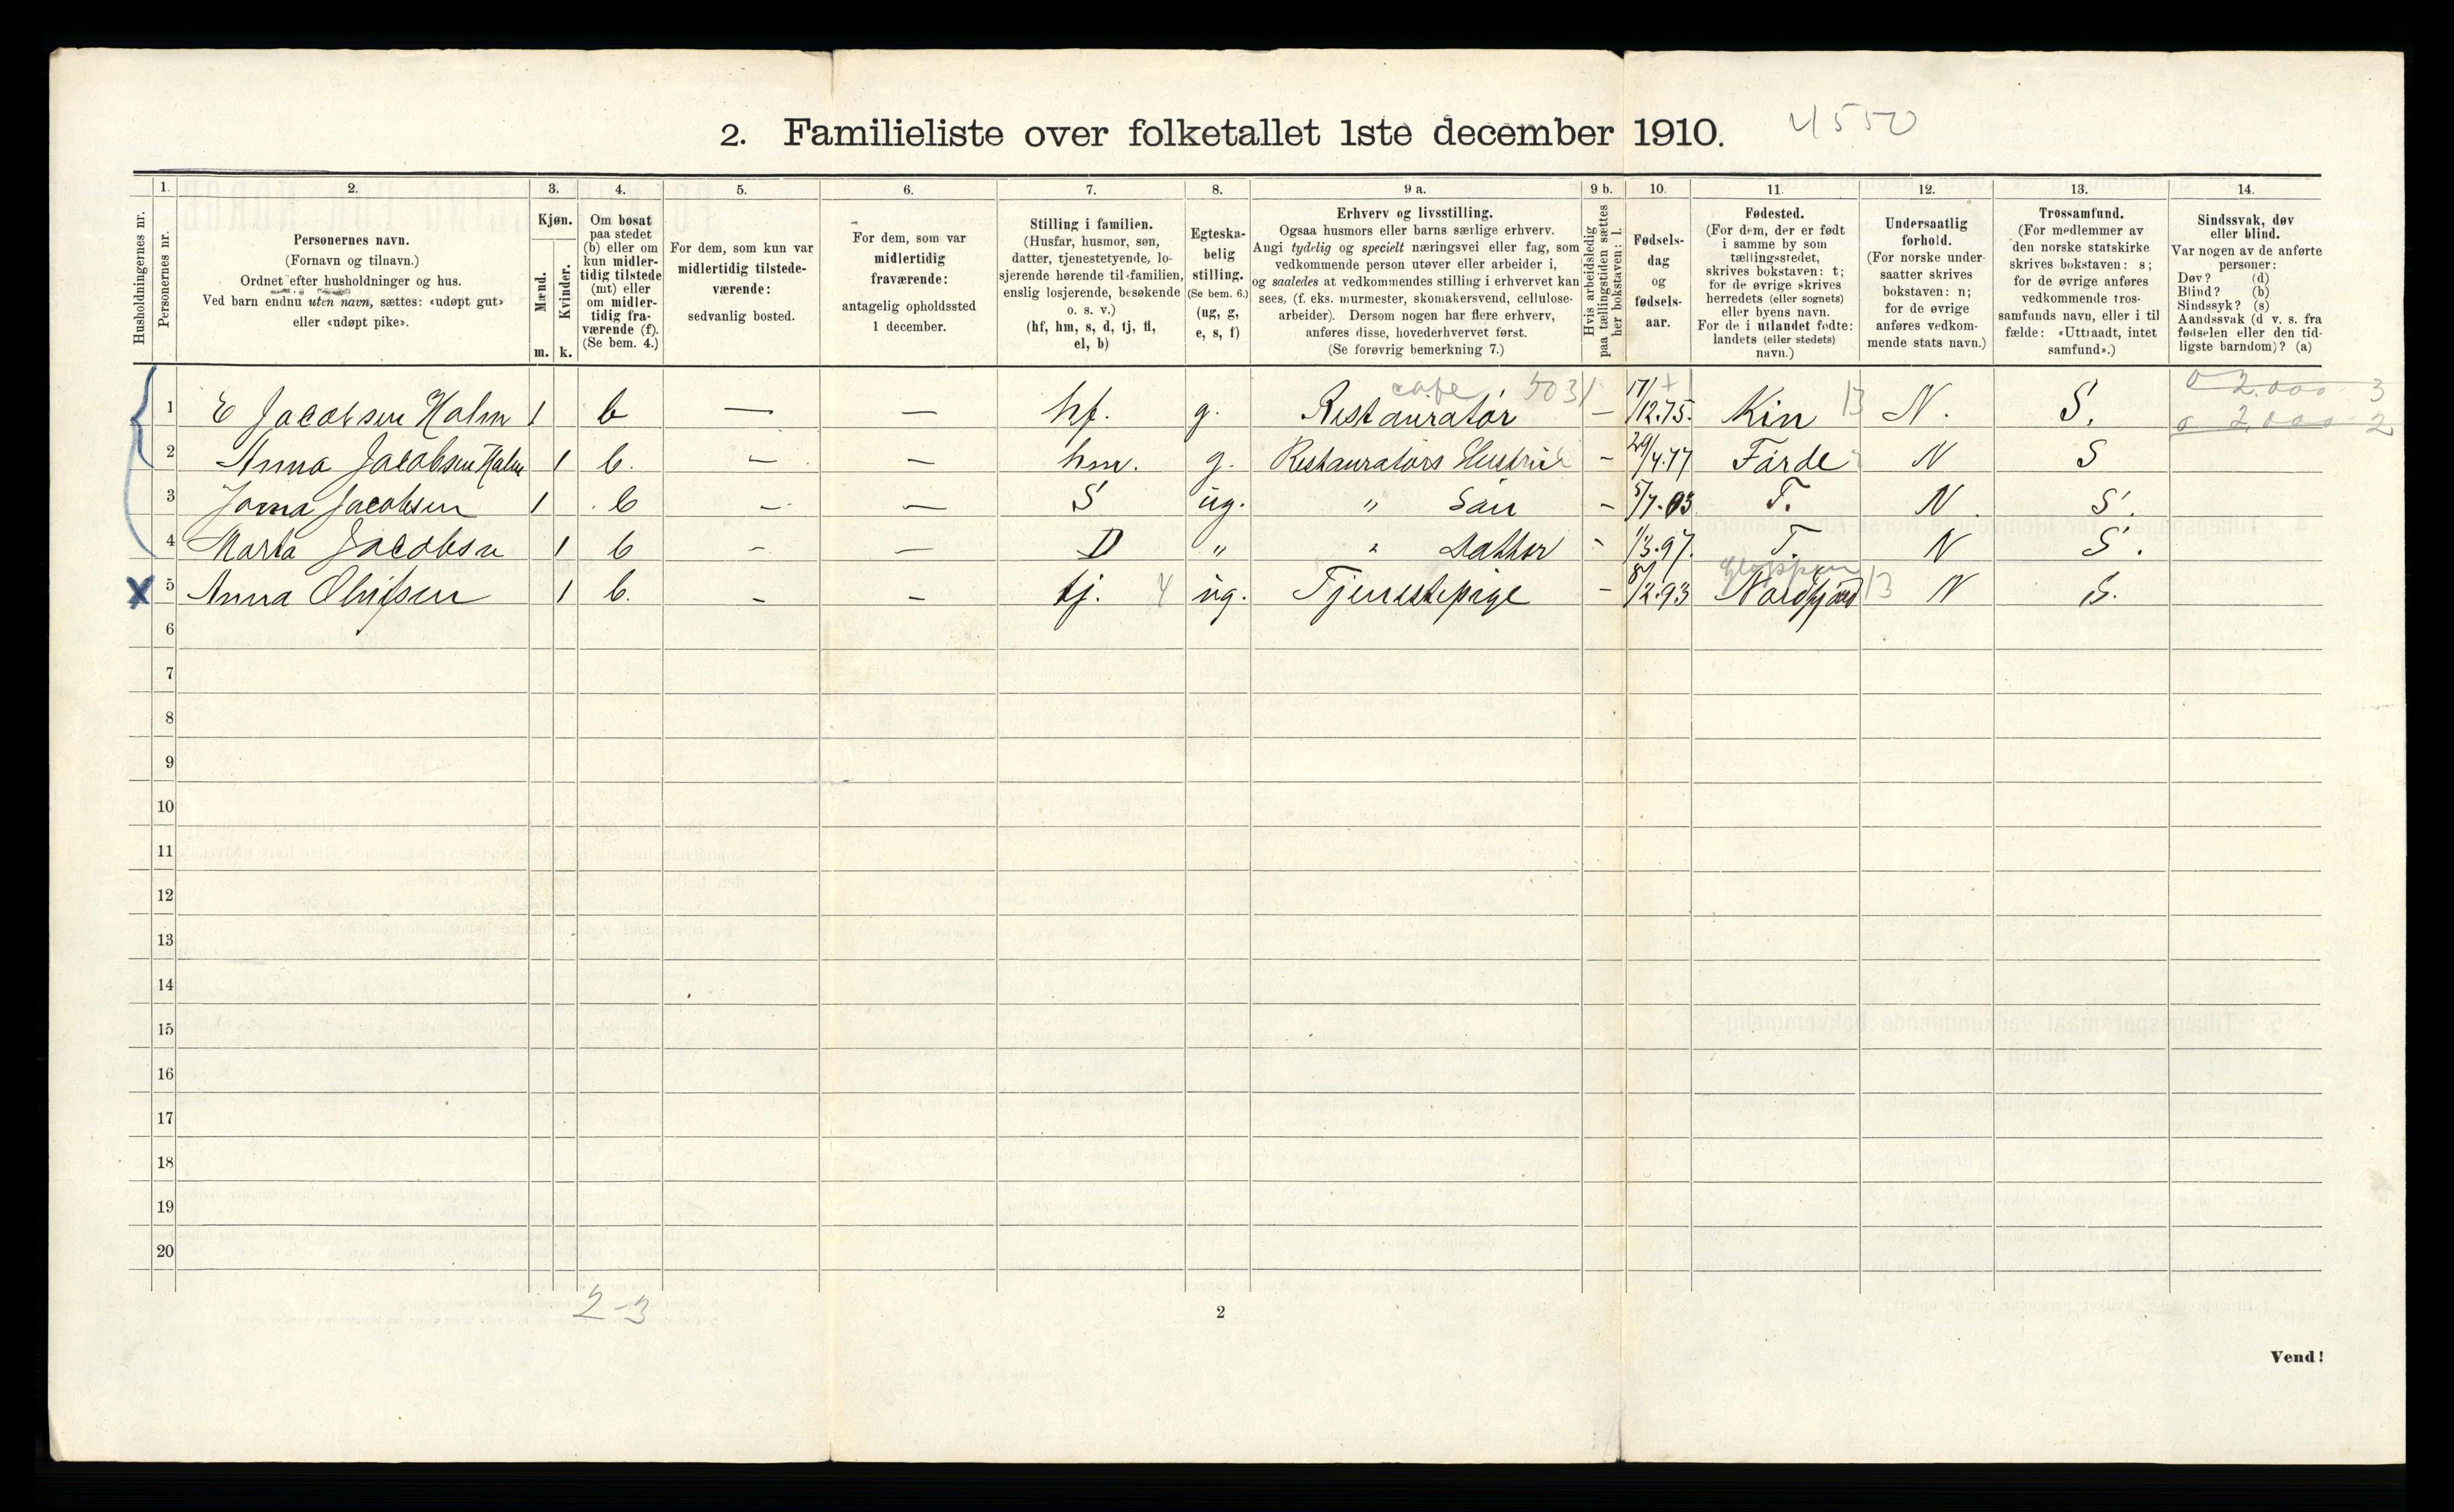 2. Familieliste over folketallet 1ste december 1910. 4550
1. 2. 3. 4. 5. 6. 7. 8. 9 a. 9 b. 10. 11. 12. 13. 14.
Husholdningernes nr.
Personernes nr.
Personernes navn.
(Fornavn og tilnavn.)
Ordnet efter husholdninger og hus.
Ved barn endnu uten navn, sættes: «udøpt gut»
eller «udøpt pike».
Kjøn.
Mænd.
Kvinder.
m. k.
Om bosat
paa stedet
(b) eller om
kun midler-
tidig tilstede
(mt) eller
om midler-
tidig fra-
værende (f).
(Se bem. 4.)
For dem, som kun var
midlertidig tilstede-
værende:
sedvanlig bosted.
For dem, som var
midlertidig
fraværende:
antagelig opholdssted
1 december.
Stilling i familien.
(Husfar, husmor, søn,
datter, tjenestetyende, lo-
sjerende hørende til familien,
enslig losjerende, besøkende
o. s. v.)
(hf, hm, s, d, tj, fl,
el, b)
Egteska-
belig
stilling.
(Se bem. 6.)
(ug, g,
e, s, f)
Erhverv og livsstilling.
Ogsaa husmors eller barns særlige erhverv.
Angi tydelig og specielt næringsvei eller fag, som
vedkommende person utøver eller arbeider i,
og saaledes at vedkommendes stilling i erhvervet kan
sees, (f. eks. murmester, skomakersvend, cellulose-
arbeider). Dersom nogen har flere erhverv,
anføres disse, hovederhvervet først.
(Se forøvrig bemerkning 7.)
Hvis arbeidsledig
paa tællingstiden sættes
her bokstaven: l.
Fødsels-
dag
og
fødsels-
aar.
Fødested.
(For dem, der er født
i samme by som
tællingsstedet,
skrives bokstaven: t;
for de øvrige skrives
herredets (eller sognets)
eller byens navn.
For de i utlandet fødte:
landets (eller stedets)
navn.)
Undersaatlig
forhold.
(For norske under-
saatter skrives
bokstaven: n;
for de øvrige
anføres vedkom-
mende stats navn.)
Trossamfund.
(For medlemmer av
den norske statskirke
skrives bokstaven: s;
for de øvrige anføres
vedkommende tros-
samfunds navn, eller i til
fælde: «Uttraadt, intet
samfund».)
Sindssvak, døv
eller blind.
Var nogen av de anførte
personer:
Døv? (d)
Blind? (b)
Sindssyk? (s)
Aandssvak (d v. s. fra
fødselen eller den tid-
ligste barndom)? (a)
cafe 5031 0 2.000 3
1 E Jacobsen Holm 1 b — — hf. g. Restauratør — 17/12.75. Kin 13 N. S. 0 2.000 2
2 Anna Jacobsen Holm 1 b. — — hm. g. Restauratørs Hustrue — 29/4.77 Førde N S
3 Jacobsen 1 b — — S ug. " Søn — 5/7.03 T. N S.
4 Marta Jacobsen 1 b — — D " " Datter - 1/3.97. T. N S.
Gloppen
5 Anna Olufsen 1 b. — — tj. 4 ug. Tjenestepige — 8/2.93 Nordfjord 13 N S.
6
7
8
9
10
11
12
13
14
15
16
17
18
19
20
2-3
2
Vend!